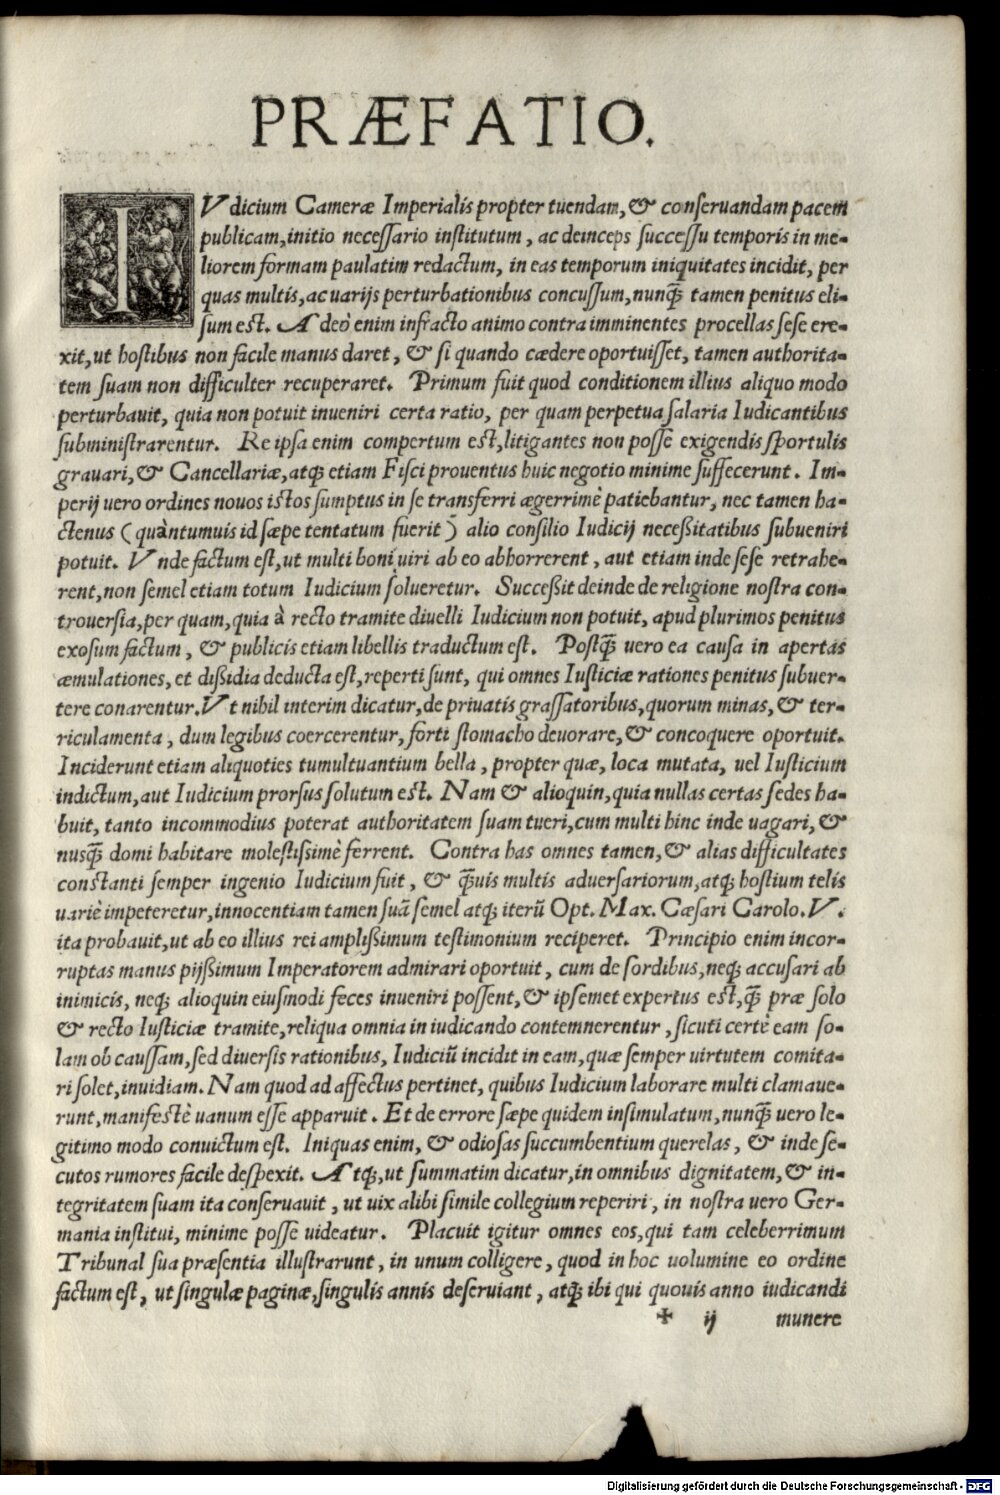 PRÆFATIO.
IVdicium Cameræ Imperialis propter tuendam, & conseruandam pacem
publicam, initio necessario institutum, ac deinceps successu temporis in me-
liorem formam paulatim redactum, in eas temporum iniquitates incidit, per
quas multis, ac uarijs perturbationibus concussum, nunq̃ tamen penitus eli-
sum est. Adeò enim infracto animo contra imminentes procellas sese ere-
xit, ut hostibus non facile manus daret, & si quando cædere oportuisset, tamen authorita-
tem suam non difficulter recuperaret. Primum fuit quod conditionem illius aliquo modo
perturbauit, quia non potuit inueniri certa ratio, per quam perpetua salaria Iudicantibus
subministrarentur. Re ipsa enim compertum est, litigantes non posse exigendis sportulis
grauari, & Cancellariæ, atq; etiam Fisci prouentus huic negotio minime suffecerunt. Im-
perij uero ordines nouos istos sumptus in se transferri ægerrimè patiebantur, nec tamen ha-
ctenus (quàntumuis id sæpe tentatum fuerit) alio consilio Iudicij necessitatibus subueniri
potuit. Vnde factum est, ut multi boni uiri ab eo abhorrerent, aut etiam inde sese retrahe-
rent, non semel etiam totum Iudicium solueretur. Successit deinde de religione nostra con-
trouersia, per quam, quia à recto tramite diuelli Iudicium non potuit, apud plurimos penitus
exosum factum, & publicis etiam libellis traductum est. Postq̃ uero ea causa in apertas
æmulationes, et dissidia deducta est, reperti sunt, qui omnes Iusticiæ rationes penitus subuer-
tere conarentur. Vt nihil interim dicatur, de priuatis grassatoribus, quorum minas, & ter-
riculamenta, dum legibus coercerentur, forti stomacho deuorare, & concoquere oportuit.
Inciderunt etiam aliquoties tumultuantium bella, propter quæ, loca mutata, uel Iusticium
indictum, aut Iudicium prorsus solutum est. Nam & alioquin, quia nullas certas sedes ha-
buit, tanto incommodius poterat authoritatem suam tueri, cum multi hinc inde uagari, &
nusq̃ domi habitare molestissimè ferrent. Contra has omnes tamen, & alias difficultates
constanti semper ingenio Iudicium fuit, & q̃uis multis aduersariorum, atq; hostium telis
uariè impeteretur, innocentiam tamen suã semel atq; iterũ Opt. Max. Cæsari Carolo. V.
ita probauit, ut ab eo illius rei amplissimum testimonium reciperet. Principio enim incor-
ruptas manus pijssimum Imperatorem admirari oportuit, cum de sordibus, neq; accusari ab
inimicis, neq; alioquin eiusmodi feces inueniri possent, & ipsemet expertus est, q̃ præ solo
& recto Iusticiæ tramite, reliqua omnia in iudicando contemnerentur, sicuti certè eam so-
lam ob caussam, sed diuersis rationibus, Iudiciũ incidit in eam, quæ semper uirtutem comita-
ri solet, inuidiam. Nam quod ad affectus pertinet, quibus Iudicium laborare multi clamaue-
runt, manifestè uanum esse apparuit. Et de errore sæpe quidem insimulatum, nunq̃ uero le-
gitimo modo conuictum est. Iniquas enim, & odiosas succumbentium querelas, & inde se-
cutos rumores facile despexit. Atq; ut summatim dicatur, in omnibus dignitatem, & in-
tegritatem suam ita conseruauit, ut uix alibi simile collegium reperiri, in nostra uero Ger-
mania institui, minime posse uideatur. Placuit igitur omnes eos, qui tam celeberrimum
Tribunal sua præsentia illustrarunt, in unum colligere, quod in hoc uolumine eo ordine
factum est, ut singulæ paginæ, singulis annis deseruiant, atq; ibi qui quouis anno iudicandi
✠ ij munere
Digitalisierung gefördert durch die Deutsche Forschungsgemeinschaft - DFG